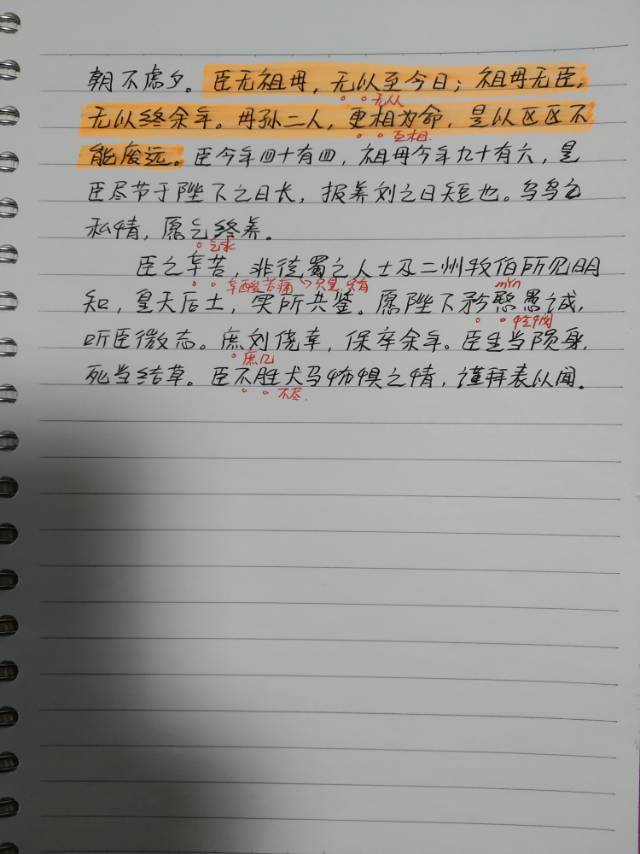 朝不虑夕。臣无祖母，无以至今日；祖母无臣，
无从
无以终余年。母孙二人，更相为命，是以区区不
互相
能废远。臣今年四十有四，祖母今年九十有六，是
臣尽节于陛下之日长，报养刘之日短也。乌鸟之
私情，愿乞终养。
乞求
臣之辛苦，非徒蜀之人士及二州牧伯所见明
辛酸苦痛 只是，只有
mǐn
知，皇天后土，实所共鉴。愿陛下矜愍愚诚，
怜悯
听臣微志。庶刘侥幸，保卒余年。臣生当陨身，
庶几
死当结草。臣不胜犬马怖惧之情，谨拜表以闻。
不尽